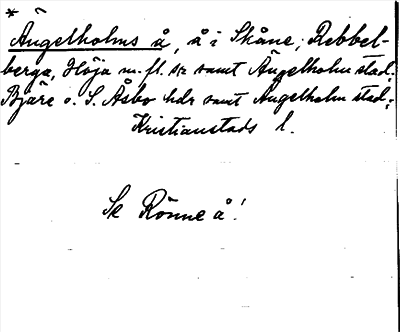 *
Ängelholms å, å i Skåne; Rebbel-
berga, Höja m. fl. s:r samt Ängelholm stad.
Bjäre o. S. Åsbo hdr samt Ängelholm stad;
Kristianstads l.
Se Rönne å!